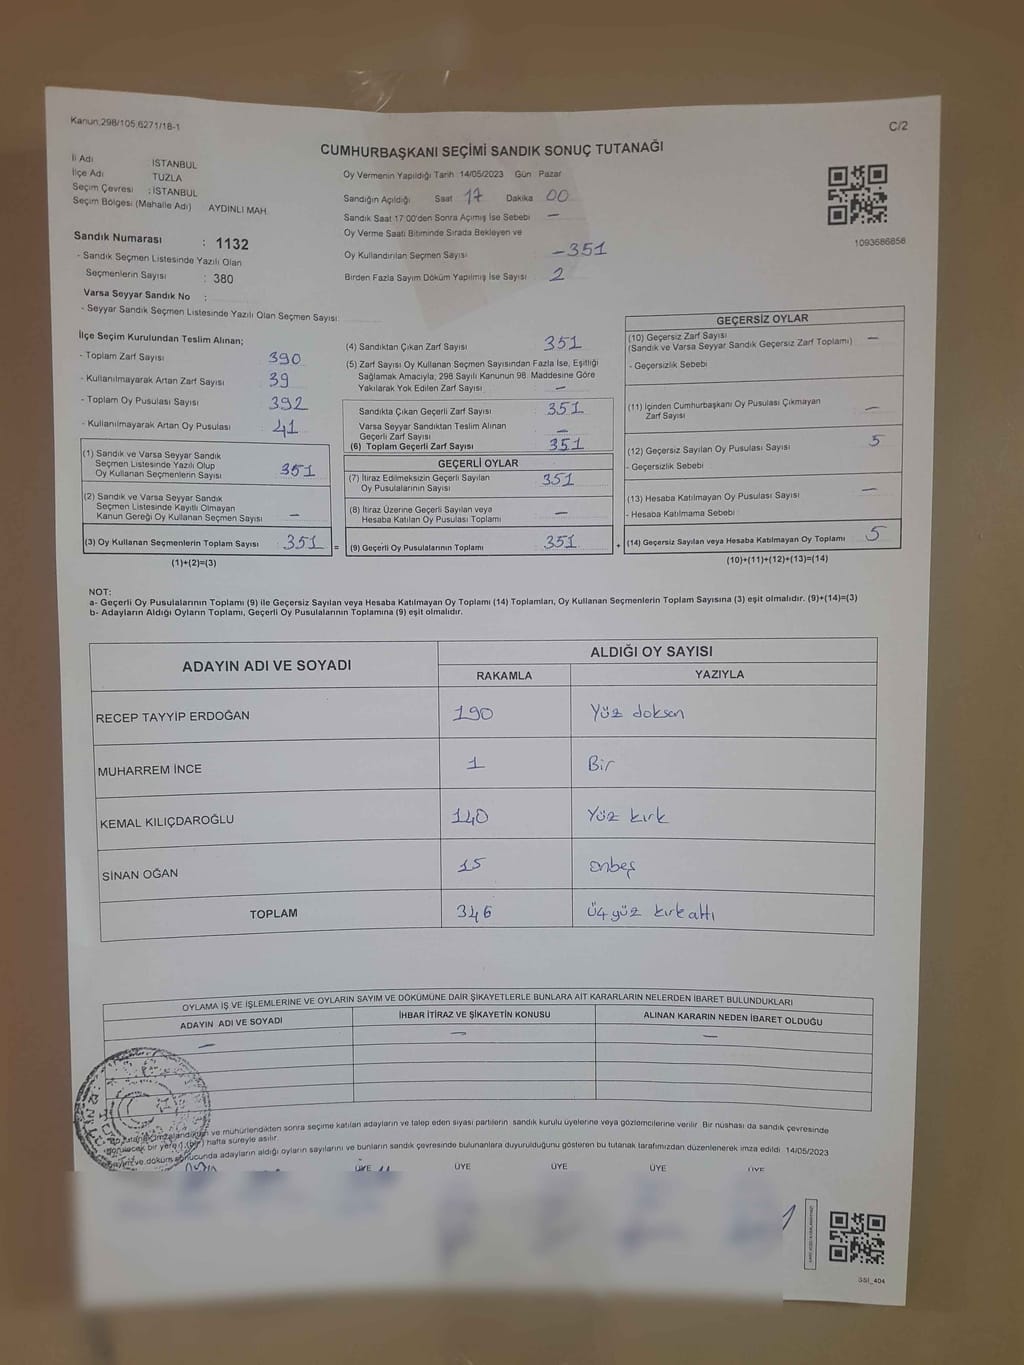 Kanun,298/105,6271/18-1
C/2
CUMHURBAŞKANI SEÇİMİ SANDIK SONUÇ TUTANAĞI
İl Adı İSTANBUL
İlçe Adı TUZLA
Seçim Çevresi : İSTANBUL
Seçim Bölgesi (Mahalle Adı) AYDINLI MAH.
Sandık Numarası : 1132
- Sandık Seçmen Listesinde Yazılı Olan
Seçmenlerin Sayısı : 380
Varsa Seyyar Sandık No :
- Seyyar Sandık Seçmen Listesinde Yazılı Olan Seçmen Sayısı:
Oy Vermenin Yapıldığı Tarih :14/05/2023 Gün Pazar
Sandığın Açıldığı Saat 17 Dakika 00
Sandık Saat 17:00'den Sonra Açımış İse Sebebi —
Oy Verme Saati Bitiminde Sırada Bekleyen ve
Oy Kullandırılan Seçmen Sayısı —351
Birden Fazla Sayım Döküm Yapılmış İse Sayısı 2
1093686858
İlçe Seçim Kurulundan Teslim Alınan;
- Toplam Zarf Sayısı 390
- Kullanılmayarak Artan Zarf Sayısı 39
- Toplam Oy Pusulası Sayısı 392
- Kullanılmayarak Artan Oy Pusulası 41
(1) Sandık ve Varsa Seyyar Sandık
Seçmen Listesinde Yazılı Olup
Oy Kullanan Seçmenlerin Sayısı 351
(2) Sandık ve Varsa Seyyar Sandık
Seçmen Listesinde Kayıtlı Olmayan
Kanun Gereği Oy Kullanan Seçmen Sayısı —
(3) Oy Kullanan Seçmenlerin Toplam Sayısı 351 =
(1)+(2)=(3)
(4) Sandıktan Çıkan Zarf Sayısı 351
(5) Zarf Sayısı Oy Kullanan Seçmen Sayısından Fazla İse, Eşitliği
Sağlamak Amacıyla, 298 Sayılı Kanunun 98. Maddesine Göre
Yakılarak Yok Edilen Zarf Sayısı —
Sandıkta Çıkan Geçerli Zarf Sayısı 351
Varsa Seyyar Sandıktan Teslim Alınan
Geçerli Zarf Sayısı —
(6) Toplam Geçerli Zarf Sayısı 351
GEÇERLİ OYLAR
(7) İtiraz Edilmeksizin Geçerli Sayılan
Oy Pusulalarının Sayısı 351
(8) İtiraz Üzerine Geçerli Sayılan veya
Hesaba Katılan Oy Pusulası Toplamı —
(9) Geçerli Oy Pusulalarının Toplamı 351 +
GEÇERSİZ OYLAR
(10) Geçersiz Zarf Sayısı
(Sandık ve Varsa Seyyar Sandık Geçersiz Zarf Toplamı) —
- Geçersizlik Sebebi
(11) İçinden Cumhurbaşkanı Oy Pusulası Çıkmayan
Zarf Sayısı —
(12) Geçersiz Sayılan Oy Pusulası Sayısı 5
- Geçersizlik Sebebi
(13) Hesaba Katılmayan Oy Pusulası Sayısı —
- Hesaba Katılmama Sebebi
(14) Geçersiz Sayılan veya Hesaba Katılmayan Oy Toplamı 5
(10)+(11)+(12)+(13)=(14)
NOT:
a- Geçerli Oy Pusulalarının Toplamı (9) ile Geçersiz Sayılan veya Hesaba Katılmayan Oy Toplamı (14) Toplamları, Oy Kullanan Seçmenlerin Toplam Sayısına (3) eşit olmalıdır. (9)+(14)=(3)
b- Adayların Aldığı Oyların Toplamı, Geçerli Oy Pusulalarının Toplamına (9) eşit olmalıdır.
ADAYIN ADI VE SOYADI
ALDIĞI OY SAYISI
RAKAMLA YAZIYLA
RECEP TAYYİP ERDOĞAN 190 Yüz doksan
MUHARREM İNCE 1 Bir
KEMAL KILIÇDAROĞLU 140 Yüz kırk
SİNAN OĞAN 15 onbeş
TOPLAM 346 Üç yüz kırk altı
OYLAMA İŞ VE İŞLEMLERİNE VE OYLARIN SAYIM VE DÖKÜMÜNE DAİR ŞİKAYETLERLE BUNLARA AİT KARARLARIN NELERDEN İBARET BULUNDUKLARI
ADAYIN ADI VE SOYADI İHBAR İTİRAZ VE ŞİKAYETİN KONUSU ALINAN KARARIN NEDEN İBARET OLDUĞU
— — —
ve mühürlendikten sonra seçime katılan adayların ve talep eden siyasi partilerin sandık kurulu üyelerine veya gözlemcilerine verilir. Bir nüshası da sandık çevresinde
bir yere hafta süreyle asılır.
ve döküm sonucunda adayların aldığı oyların sayılarını ve bunların sandık çevresinde bulunanlara duyurulduğunu gösteren bu tutanak tarafımızdan düzenlenerek imza edildi. 14/05/2023
ÜYE ÜYE ÜYE ÜYE ÜYE
SSI_404